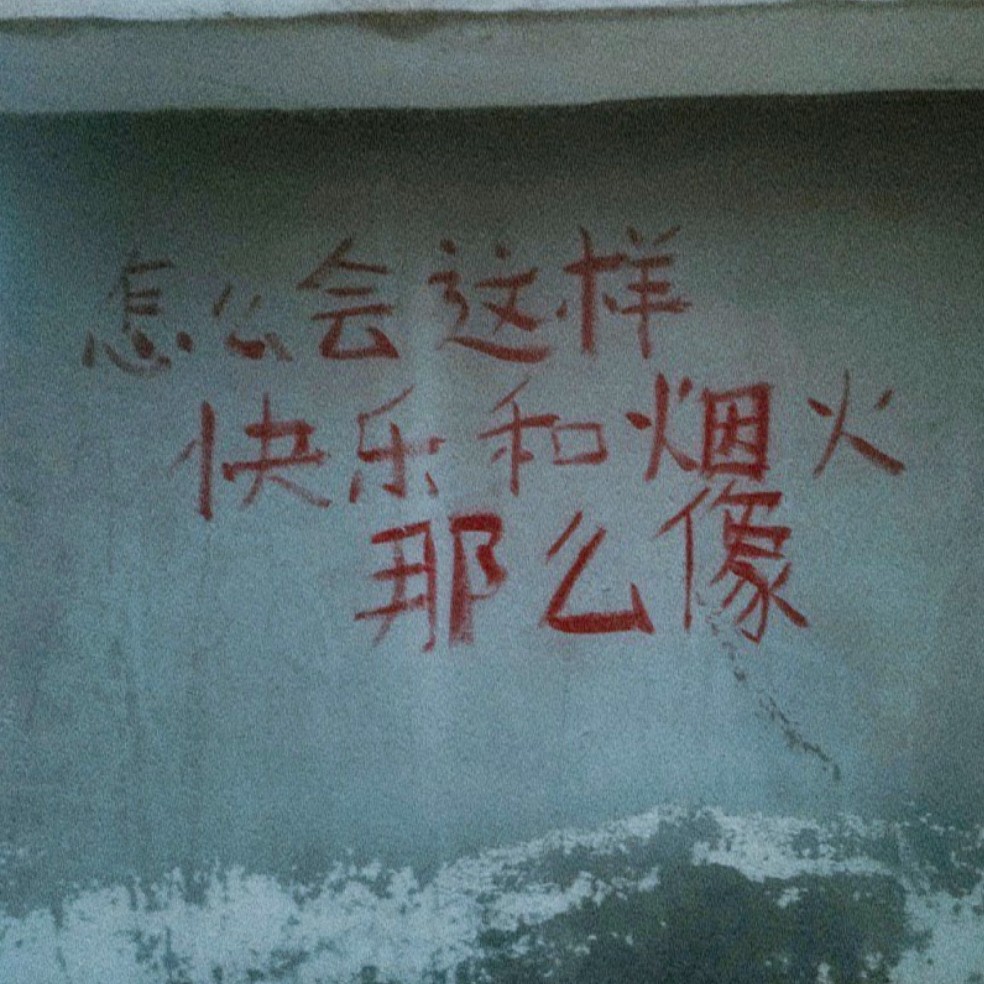 怎么会这样
快乐和烟火
那么像